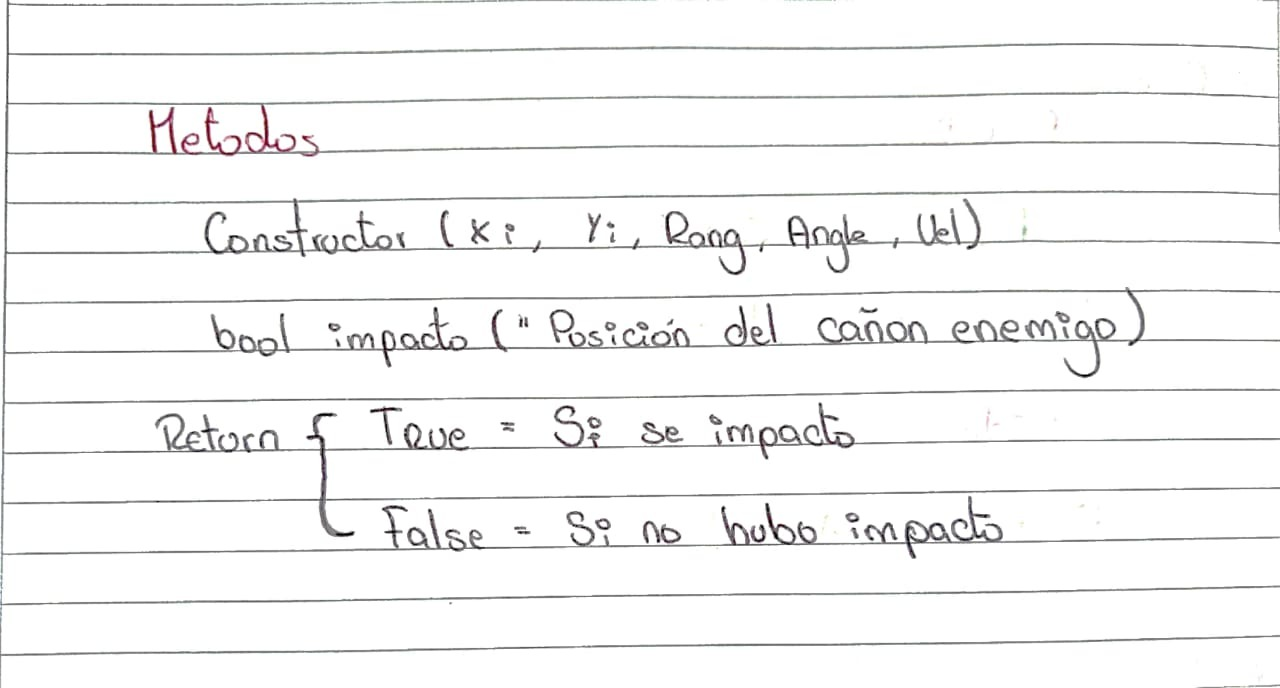 Metodos
Constructor (xi, Yi, Rang, Angle, Vel)
bool impacto (" Posición del cañon enemigo)
Return { True = Si se impacto
False = Si no hubo impacto